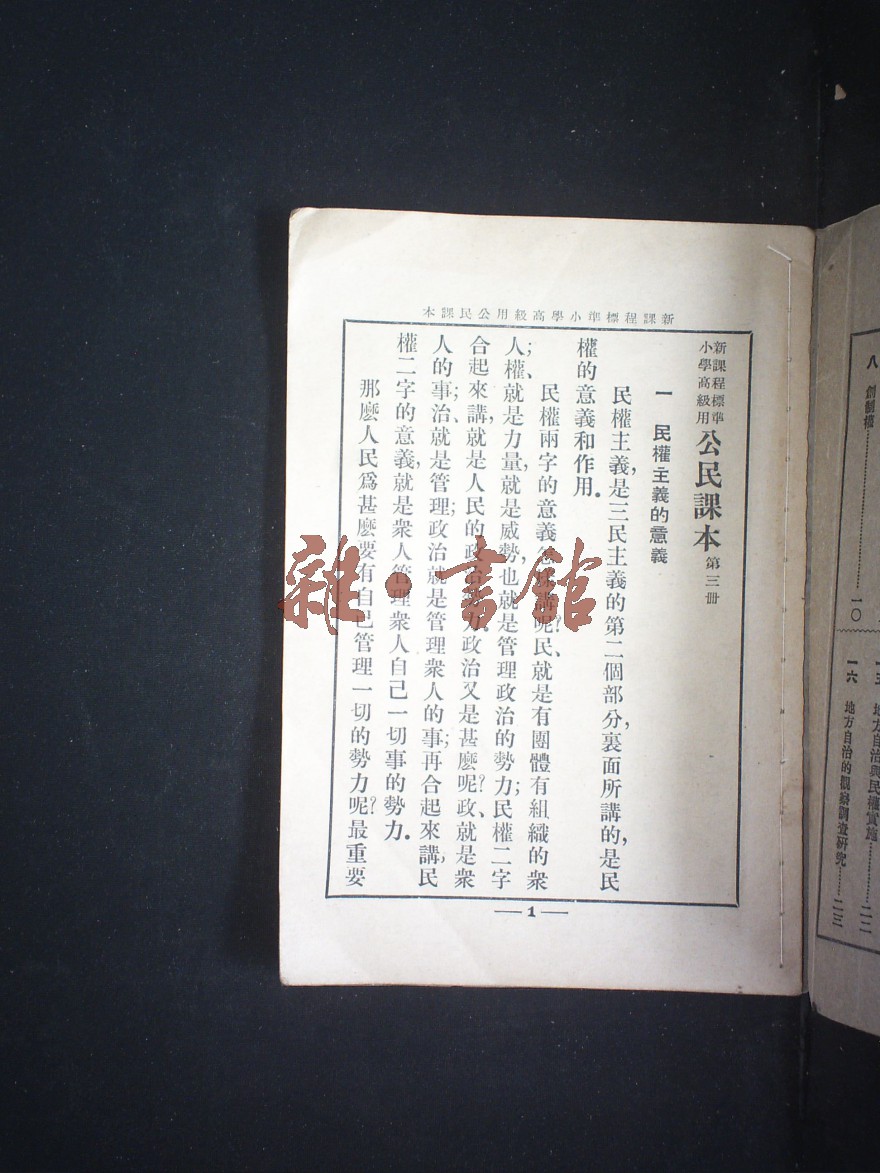 新課程標準小學高級用公民課本
新課程標準
小學高級用
公民課本 第三册
一 民權主義的意義
民權主義，是三民主義的第二個部分，裏面所講的，是民
權的意義和作用。
民權兩字的意義怎樣講呢？民、就是有團體有組織的衆
人；權、就是力量，就是威勢，也就是管理政治的勢力；民權二字
合起來講，就是人民的政治勢力。政治又是甚麽呢？政、就是衆
人的事；治、就是管理；政治就是管理衆人的事；再合起來講，民
權二字的意義，就是衆人管理衆人自己一切事的勢力。
那麽人民爲甚麽要有自己管理一切的勢力呢？最重要
1
八 創制權 一〇
地方自治與民權實施 二二
一六 地方自治的觀察調查研究 二三
雜·書館